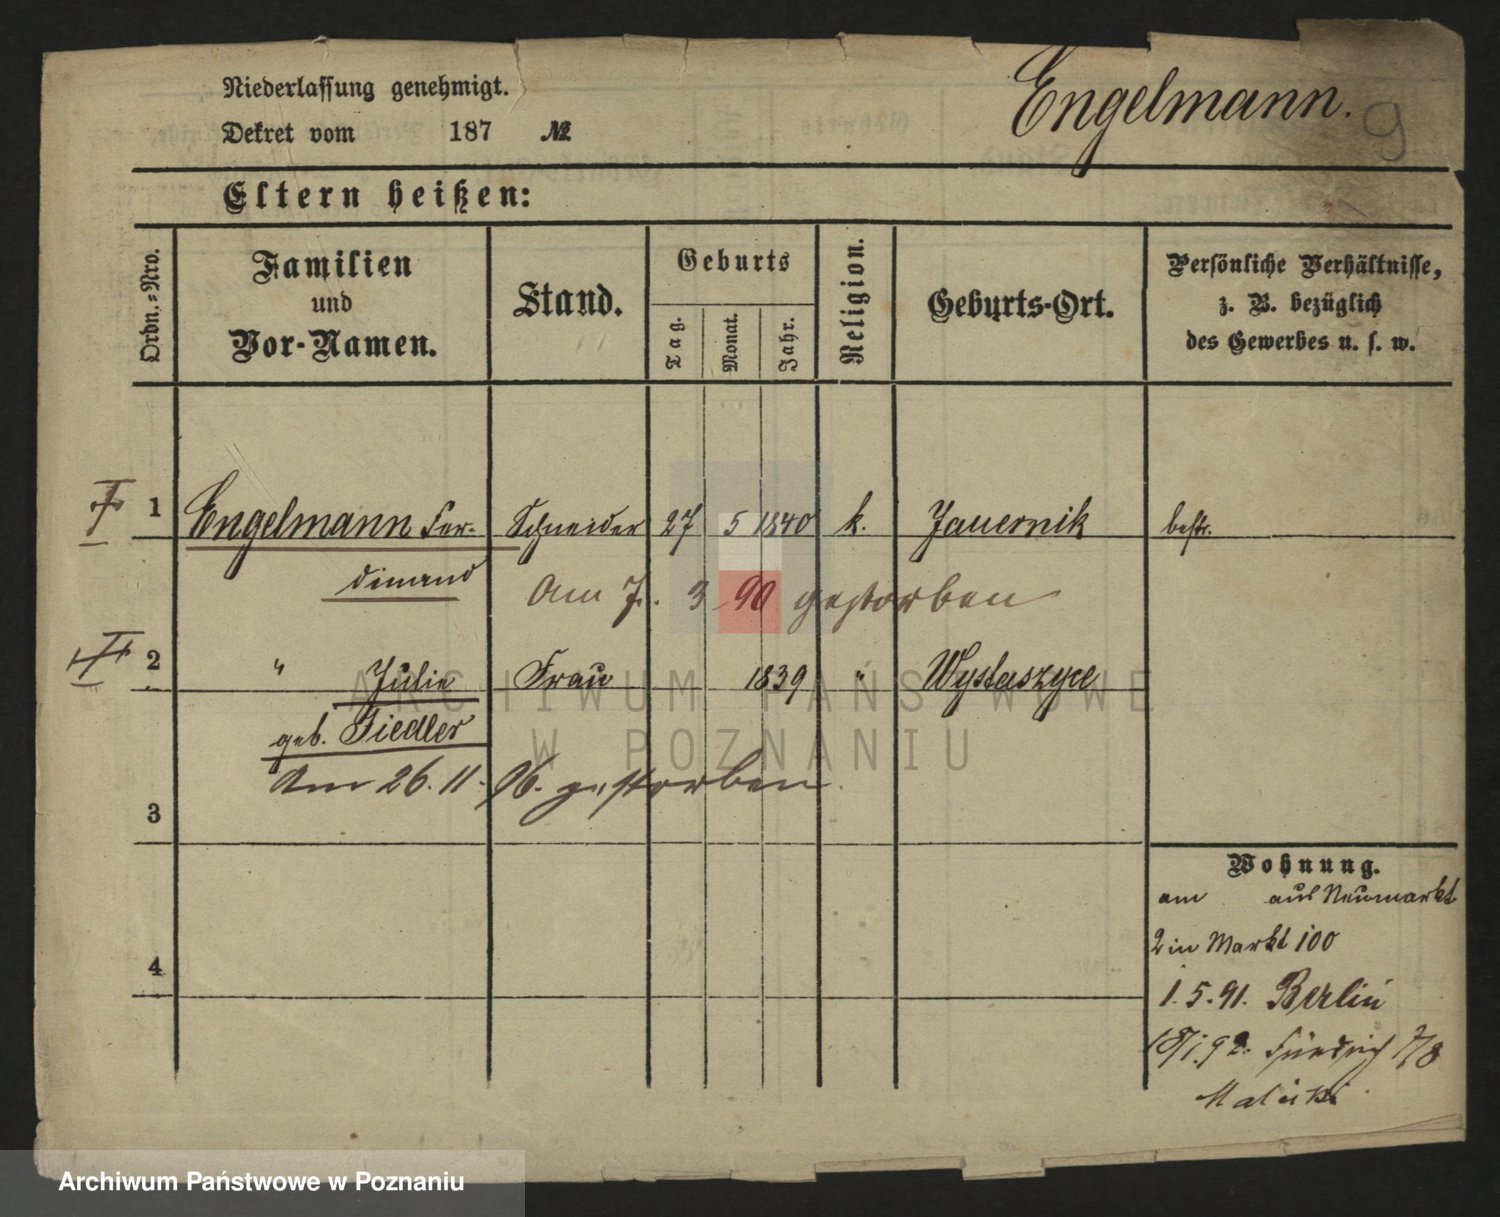 Engelmann.
9
Niederlassung genehmigt.
Dekret vom 187 №
Eltern heißen:
Ordn.=Nro.
Familien
und
Vor-Namen.
Stand.
Geburts
Tag.
Monat.
Jahr.
Religion.
Geburts-Ort.
Persönliche Verhältnisse,
z. B. bezüglich
des Gewerbes u. s. w.
1 Engelmann Fer- Schneider 27 5 1840 k. Jauernik bestr.
dinand
Am 7. 3 90 gestorben
2 " Julie Frau 1839 " Wystaszyce
geb. Fiedler
Am 26. 11. 96. gestorben.
3
4
Wohnung.
am aus Neumarkt
2 in Markt 100
1. 5. 91. Berlin
7/8
ARCHIWUM PAŃSTWOWE
W POZNANIU
Archiwum Państwowe w Poznaniu